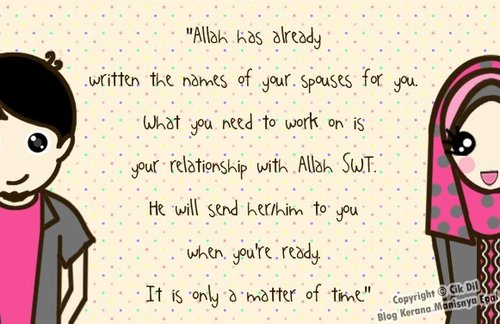 "Allah has already
written the names of your spouses for you.
What you need to work on is
your relationship with Allah S.W.T.
He will send her/him to you
when you're ready.
It is only a matter of time."
Copyright © Cik Dil
Blog Kerana Manisnya